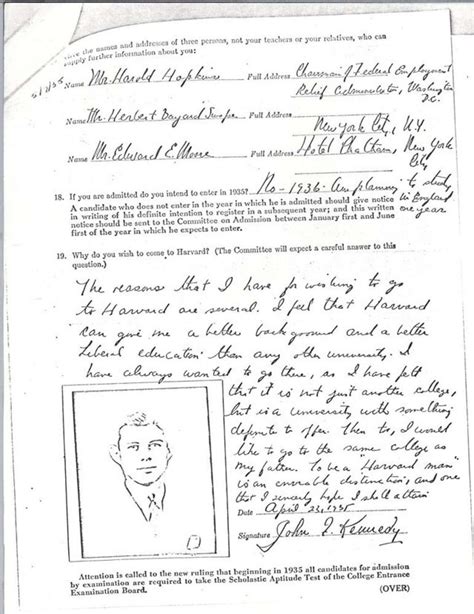 Give the names and addresses of three persons, not your teachers or your relatives, who can
supply further information about you:
Name Mr. Harold Hopkins Full Address Chairman of Federal Employment
Relief Administration, Washington
D.C.
Name Mr. Herbert Bayard Swope Full Address
New York City, N.Y.
Name Mr. Edward E. Moore Full Address Hotel Chatham, New York
City
18. If you are admitted do you intend to enter in 1935? No - 1936. Am planning to study
in England
one year
A candidate who does not enter in the year in which he is admitted should give notice
in writing of his definite intention to register in a subsequent year; and this written
notice should be sent to the Committee on Admission between January first and June
first of the year in which he expects to enter.
19. Why do you wish to come to Harvard? (The Committee will expect a careful answer to this
question.)
The reasons that I have for wishing to go
to Harvard are several. I feel that Harvard
can give me a better background and a better
liberal education than any other university. I
have always wanted to go there, as I have felt
that it is not just another college,
but is a university with something
definite to offer. Then too, I would
like to go to the same college as
my father. To be a "Harvard man"
is an enviable distinction, and one
that I sincerely hope I shall attain
Date April 23, 1935
Signature John F. Kennedy
Attention is called to the new ruling that beginning in 1935 all candidates for admission
by examination are required to take the Scholastic Aptitude Test of the College Entrance
Examination Board.
(OVER)